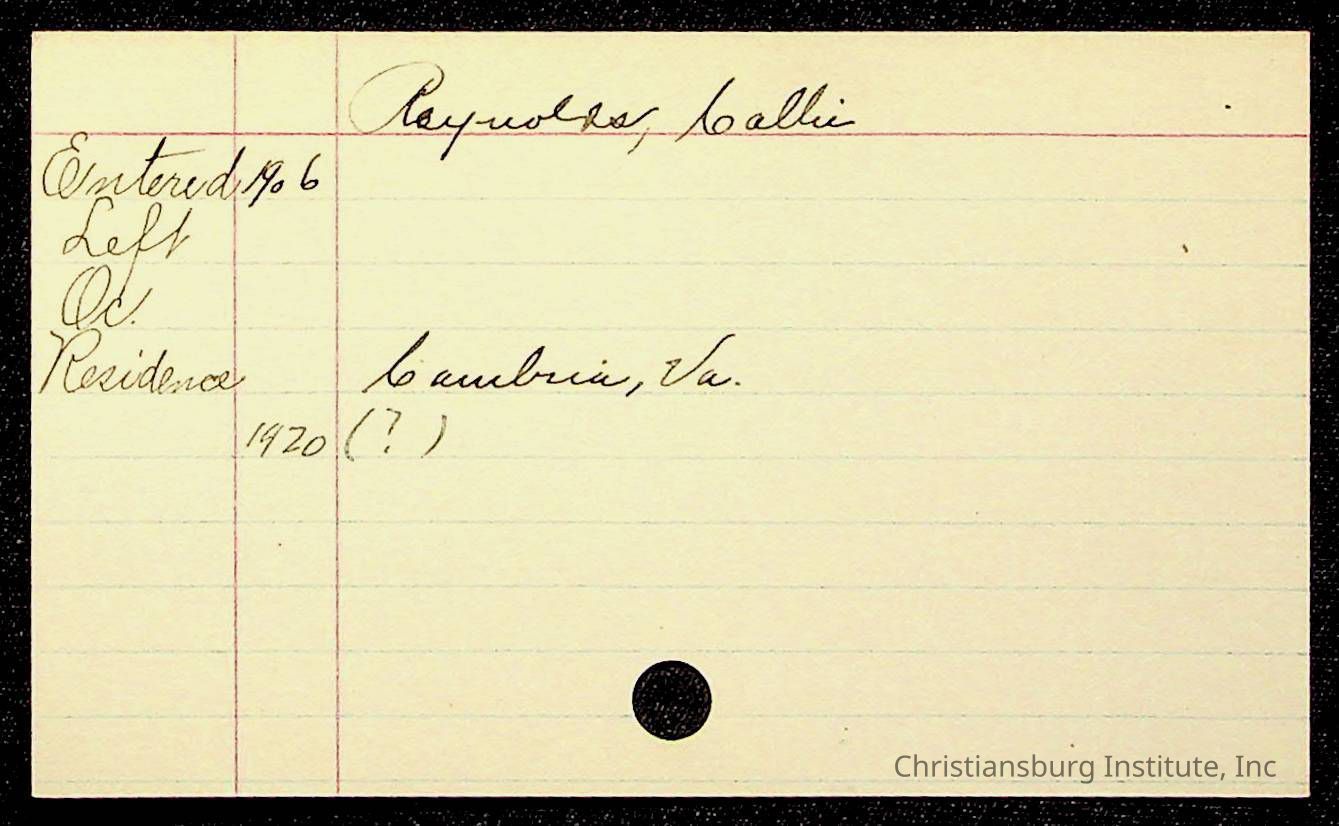 Reynolds, Callie
Entered 1906
Left
Oc.
Residence Cambria, Va.
1920 (?)
Christiansburg Institute, Inc